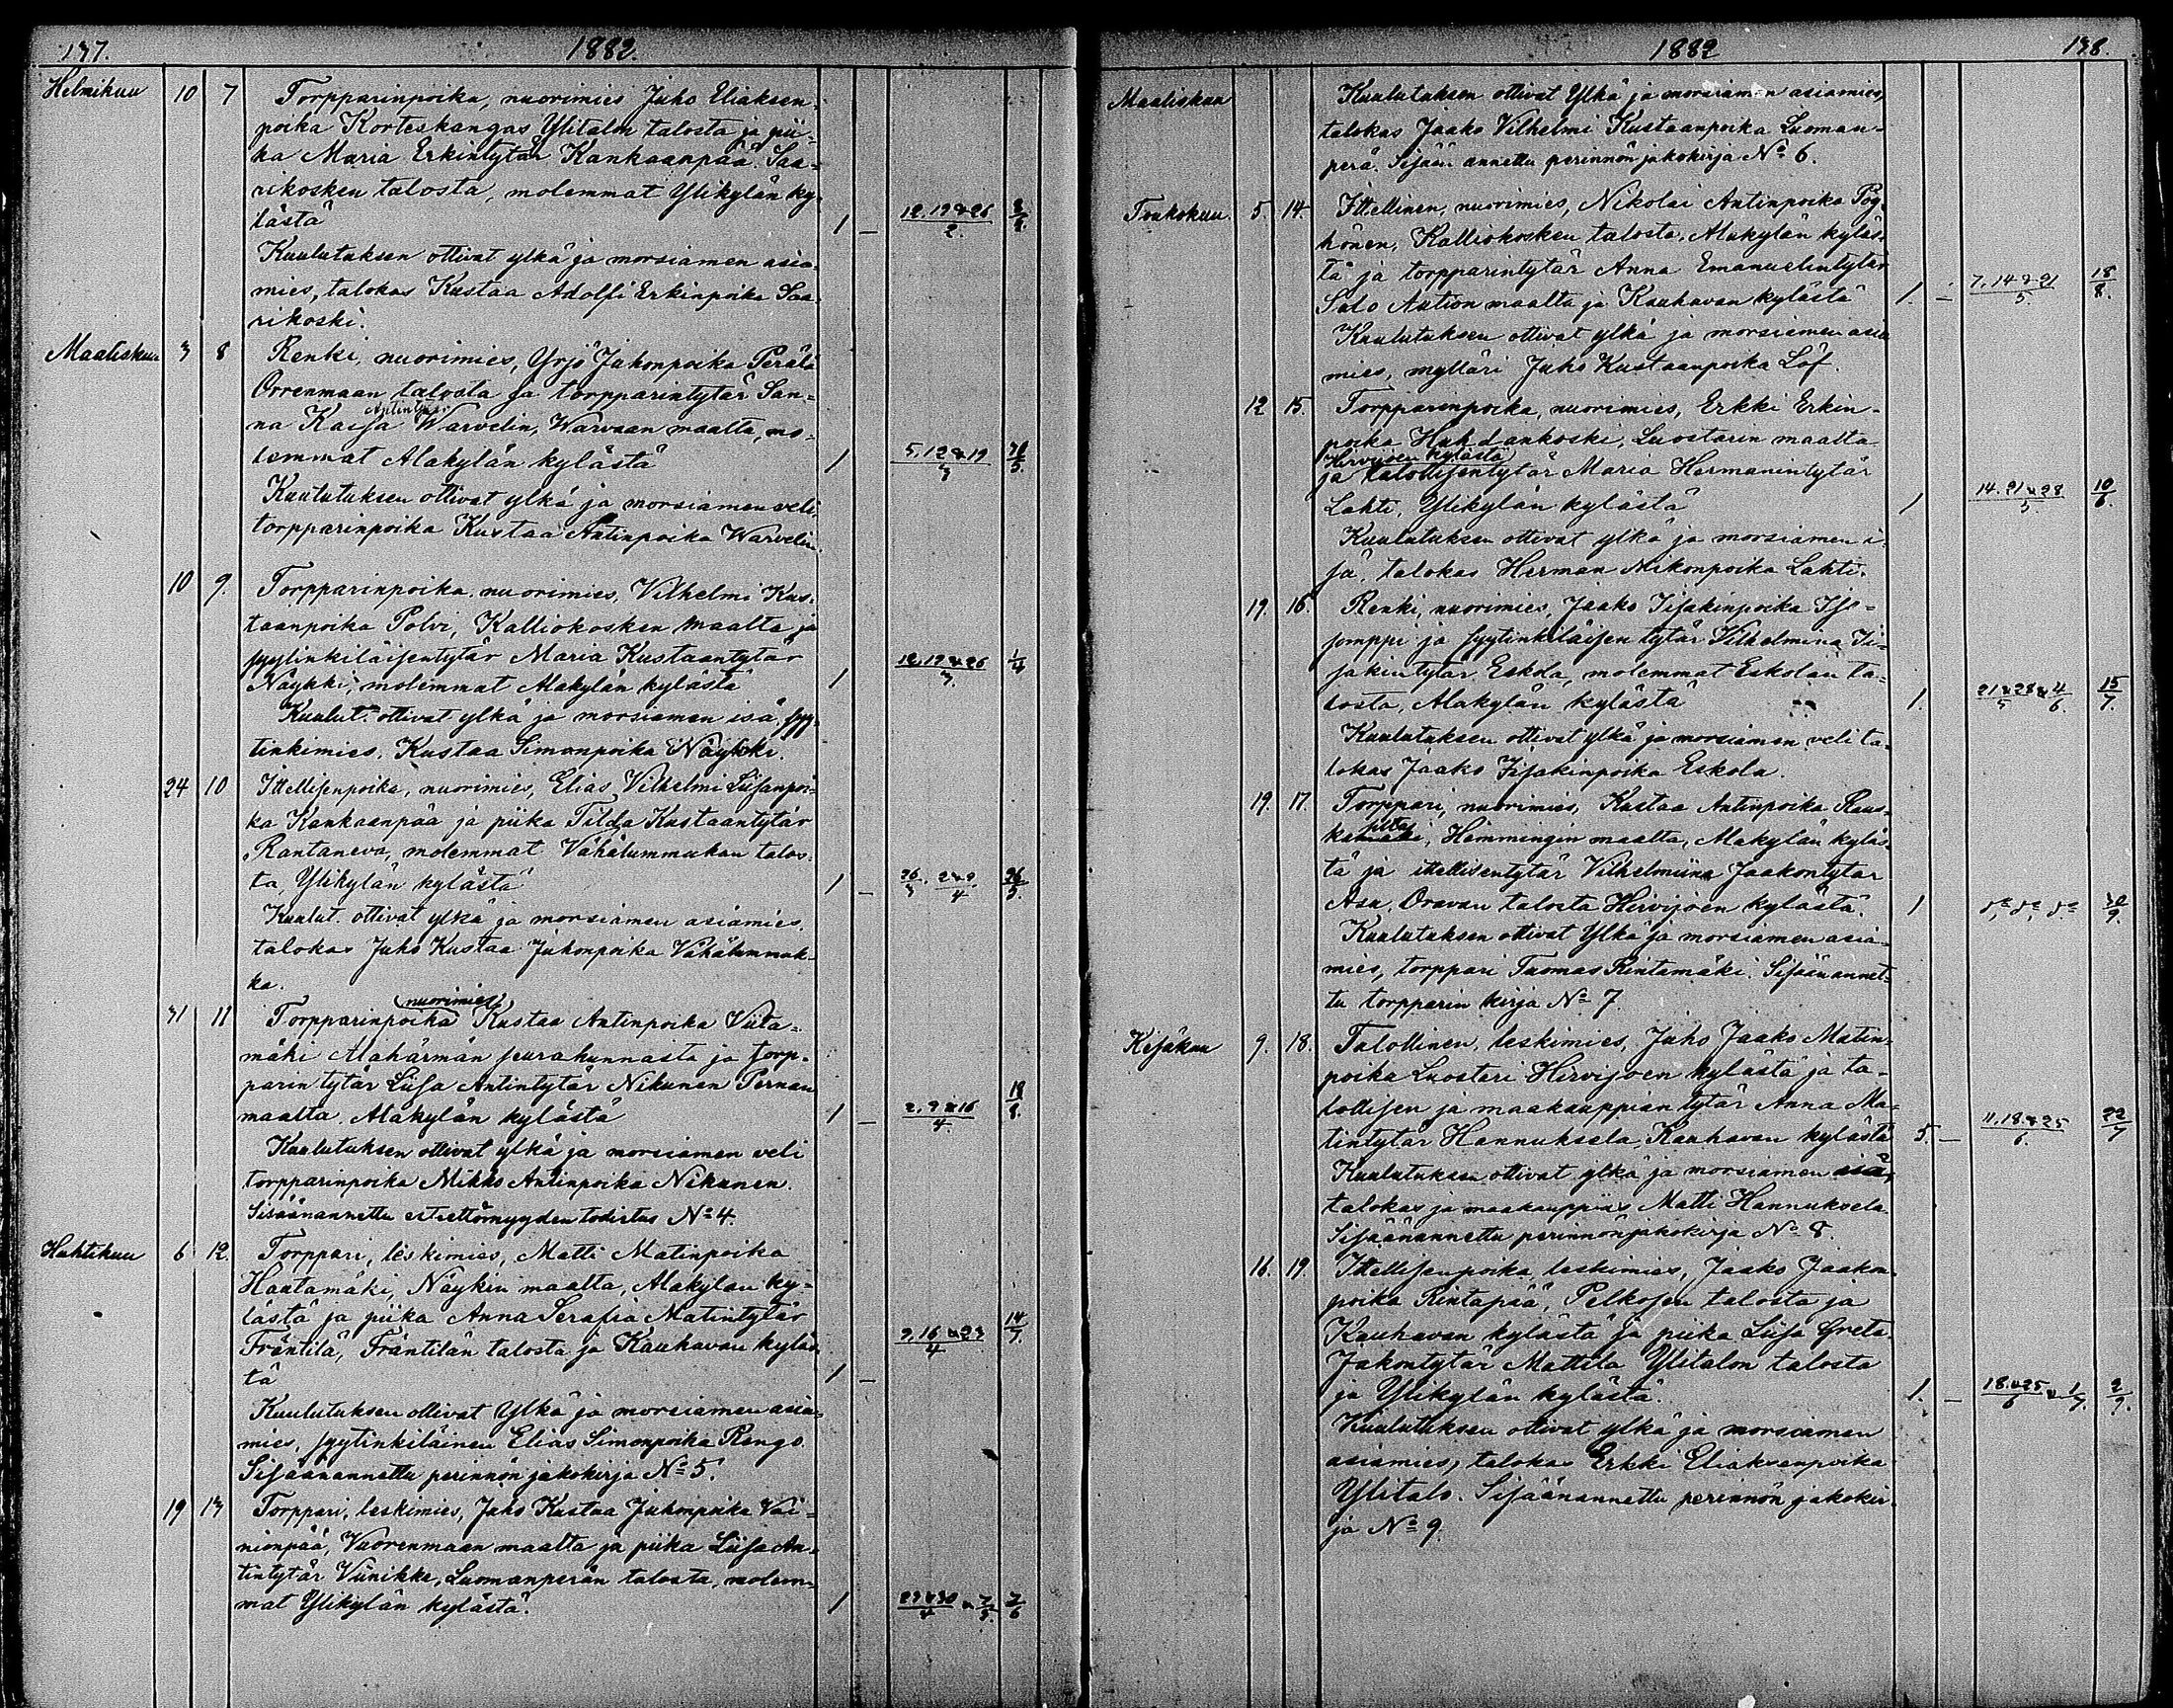 137. 1882.
Helmikuu 10 7 Torpparinpoika, nuorimies Juho Eliaksen-
poika Korteskangas Ylitalon talosta ja pii-
ka Maria Erkintytär Kankaanpää Saa-
rikosken talosta, molemmat Ylikylän ky-
lästä 1 — 12.19&26/2.
Kuulutuksen ottivat ylkä ja morsiamen asia-
mies, talokas Kustaa Adolfi Erkinpoika Saa-
rikoski.
Maaliskuu 3 8 Renki, nuorimies, Yrjö Juhonpoika Perälä
Orrenmaan talosta ja torpparintytär San-
na Kaisa Antintytär Warvelin, Warvaan maalta, mo-
lemmat Alakylän kylästä 1 5.12&19/3
Kuulutuksen ottivat ylkä ja morsiamen veli,
torpparinpoika Kustaa Antinpoika Warvelin.
10 9. Torpparinpoika, nuorimies, Vilhelmi Kus-
taanpoika Polvi, Kalliokosken maalta ja
syytinkiläisentytär Maria Kustaantytär
Näykki, molemmat Alakylän kylästä 1 12.19&26/3. 1/4
Kuulut. ottivat ylkä ja morsiamen isä, syy-
tinkimies, Kustaa Simonpoika Näykki.
24 10 Itellisenpoika, nuorimies, Elias Vilhelmi Liisanpoi-
ka Kankaanpää ja piika Tilda Kustaantytär
Rantaneva, molemmat Vähälummukan talos-
ta, Ylikylän kylästä 1 — 26/3. 2&9/4. 26/5.
Kuulut. ottivat ylkä ja morsiamen asiamies,
talokas Juho Kustaa Juhonpoika Vähälummuk-
ka.
31 11 Torpparinpoika (nuorimies) Kustaa Antinpoika Viita-
mäki Alahärmän seurakunnasta ja torp-
parintytär Liisa Antintytär Nikunen Pernaan
maalta, Alakylän kylästä 1 — 2.9&16/4.
Kuulutuksen ottivat ylkä ja morsiamen veli
torpparinpoika Mikko Antinpoika Nikunen.
Sisäänannettu esteettömyyden todistus No 4.
Huhtikuu 6 12. Torppari, leskimies, Matti Matinpoika
Hautamäki, Näykin maalta, Alakylän ky-
lästä ja piika Anna Serafia Matintytär
Fräntilä, Fräntilän talosta ja Kauhavan kyläs-
tä 1 — 9.16&23/4 14/7.
Kuulutuksen ottivat Ylkä ja morsiamen asia-
mies, syytinkiläinen Elias Simonpoika Rengo.
Sisäänannettu perinnön jakokirja No 5.
19 13 Torppari, leskimies, Juho Kustaa Juhonpoika Vai-
nionpää, Vuorenmaan maalta ja piika Liisa An-
tintytär Viinikka, Luomanperän talosta, molem-
mat Ylikylän kylästä. 1 23&30/4 & 7/5.
1882 138.
Maaliskuu Kuulutuksen ottivat Ylkä ja morsiamen asiamies,
talokas Jaako Vilhelmi Kustaanpoika Luoman-
perä. Sisään annettu perinnön jakokirja No 6.
Toukokuu. 5. 14. Ittellinen, nuorimies, Nikolai Antinpoika Pöy-
hönen, Kalliokosken talosta, Alakylän kyläs-
tä ja torpparintytär Anna Emanuelintytär
Salo Aution maalta ja Kauhavan kylästä 1. — 7.14&21/5 18/8.
Kuulutuksen ottivat ylkä ja morsiamen asia
mies, mylläri Juho Kustaanpoika Löf.
12 15. Torpparinpoika, nuorimies, Erkki Erkin-
poika Huhdankoski, Luostarin maalta
Hirvijoen kylästä
ja talollisentytär Maria Hermanintytär
Lahti, Ylikylän kylästä 1 14.21&28/5. 10/6.
Kuulutuksen ottivat ylkä ja morsiamen i-
sä, talokas Herman Mikonpoika Lahti.
19. 16. Renki, nuorimies, Jaako Iisakinpoika Iso-
jomppi ja syytinkiläisen tytär Vilhelmina Ii-
sakintytär Eskola, molemmat Eskolan ta-
losta, Alakylän kylästä 1. 21&28/5 & 4/6. 15/7.
Kuulutuksen ottivat ylkä ja morsiamen veli ta-
lokas Jaako Iisakinpoika Eskola.
19. 17. Torppari, nuorimies, Kustaa Antinpoika Raus-
, Hemmingin maalta, Alakylän kyläs-
tä ja itellisentytär Vilhelmiina Jaakontytär
Asu, Oravan talosta Hirvijoen kylästä. 1
Kuulutuksen ottivat Ylkä ja morsiamen asia-
mies, torppari Tuomas Rintamäki. Sisäänannet-
tu torpparin kirja No 7.
Kesäkuu 9. 18. Talollinen, leskimies, Juho Jaako Matin-
poika Luostari Hirvijoen kylästä ja ta-
lollisen ja maakauppian tytär Anna Ma-
tintytär Hannuksela, Kauhavan kylästä 5. — 11.18&25/6. 22/7
Kuulutuksen ottivat ylkä ja morsiamen isä,
talokas ja maakauppias Matti Hannuksela.
Sisäänannettu perinnönjakokirja No 8.
16. 19. Ittellisenpoika, leskimies, Jaako Jaakon-
poika Rintapää, Pelkosen talosta ja
Kauhavan kylästä ja piika Liisa Greta
Juhontytär Mattila Ylitalon talosta
ja Ylikylän kylästä. 1. — 18&25/6 & 1/7. 2/9.
Kuulutuksen ottivat ylkä ja morsiamen
asiamies, talokas Erkki Eliaksenpoika
Ylitalo. Sisäänannettu perinnön jakokir-
ja No 9.